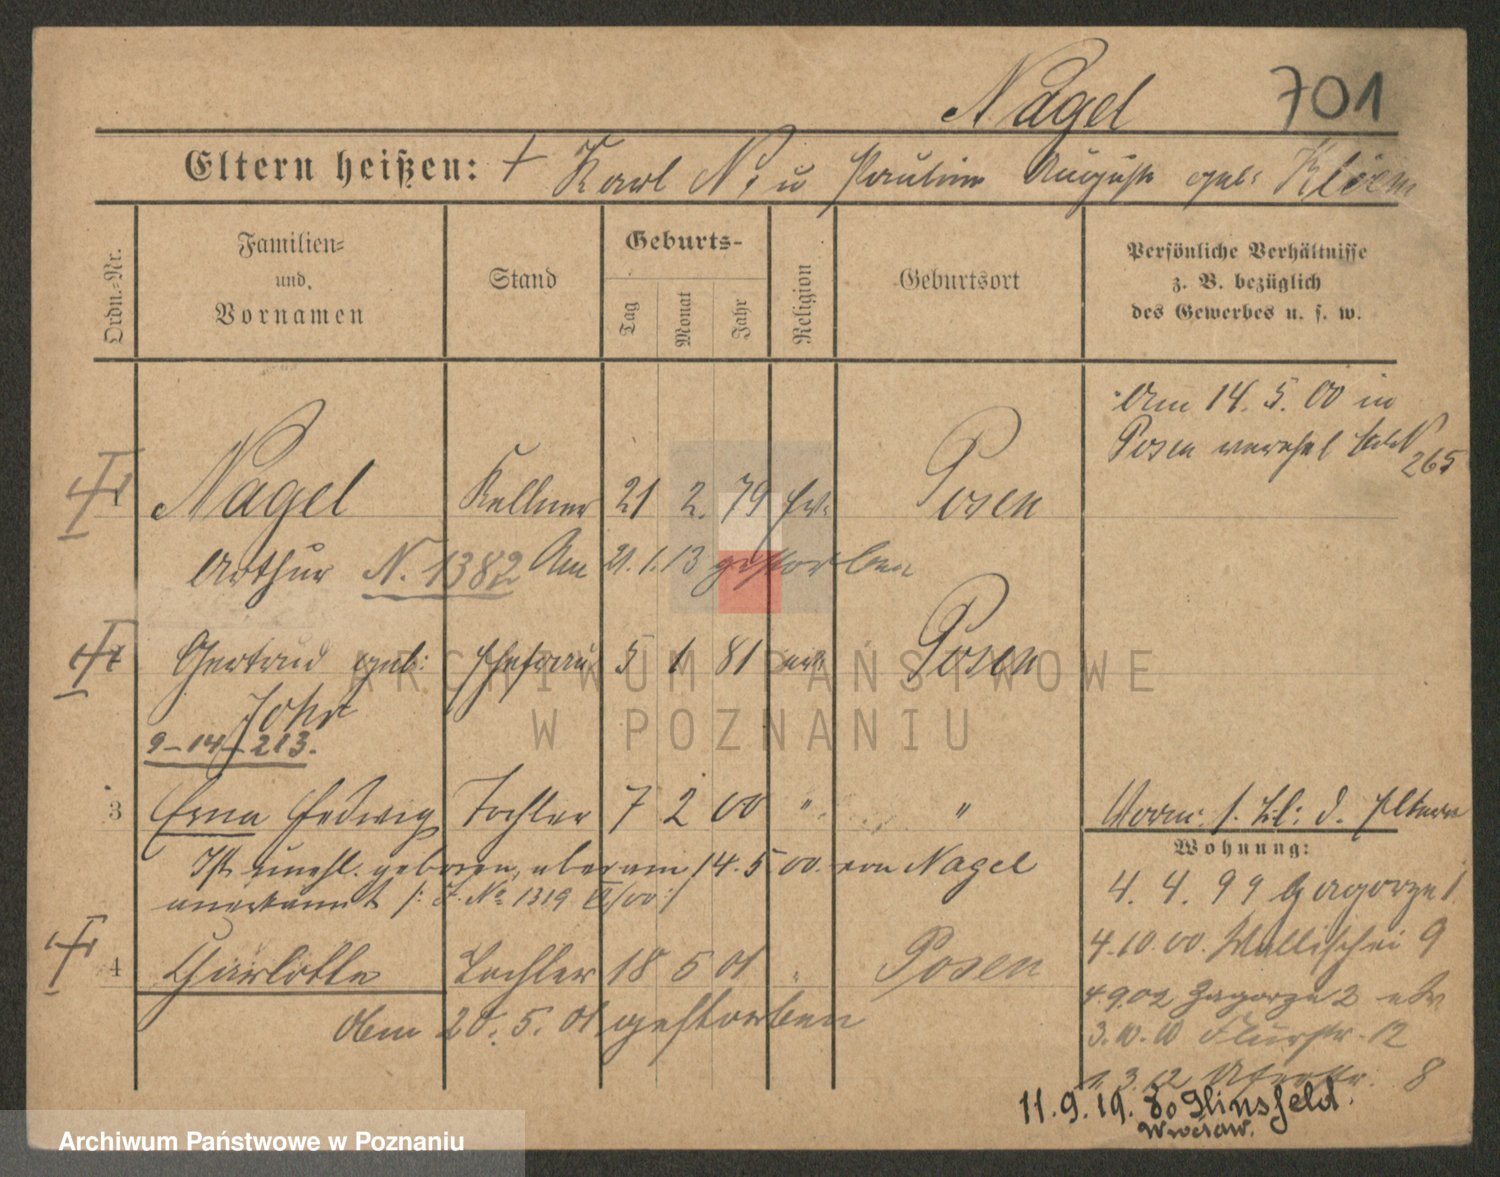 Nagel 701
Eltern heißen: † Karl N. u Pauline Auguste geb.
Ordn.-Nr.
Familien-
und
Vornamen
Stand
Geburts-
Tag
Monat
Jahr
Religion
Geburtsort
Persönliche Verhältnisse
z. B. bezüglich
des Gewerbes u. s. w.
Am 14.5.00 in
Posen verehel.
265
1 Nagel Kellner 21 2. 79 ev. Posen
Arthur N. 1382 Am 21.1.13 gestorben
Gertrud geb: Ehefrau 5 1 81 Posen
9-14-213.
3 Erna Hedwig Tochter 7 2 00 " " Vorm: d. Eltern
Ist unehl. geboren, aber am 14.5.00. von Nagel
anerkannt /: J. No 1319 /00:/
Wohnung:
4.4.99 Zagorze 1
4 Charlotte Tochter 18 5 01 " Posen
4.10.00. Wallischei 9
4.9.02 Zagorze 2
Am 20.5.01. gestorben
3.10.10 Flurstr. 12
1.3.12 8
11.9.19. Hinsfeld.
ARCHIWUM PAŃSTWOWE
W POZNANIU
Archiwum Państwowe w Poznaniu